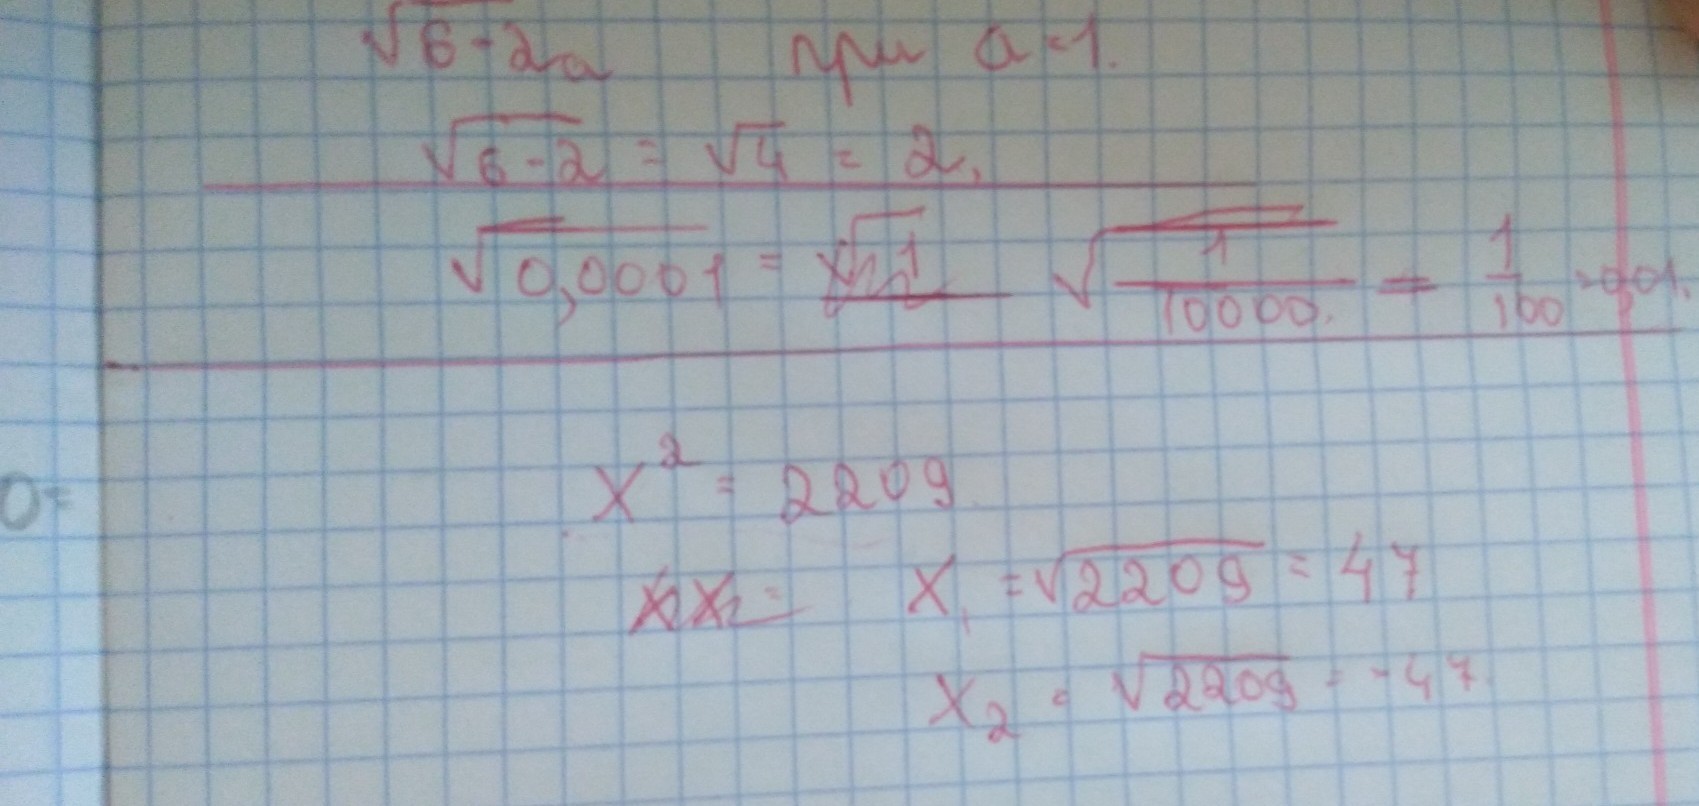 √6-2a при a=1.
√6-2 = √4 = 2.
√0,0001 = √1/10000. = 1/100 = 0,01.
x² = 2209
0=
x₁ = √2209 = 47
x₂ = √2209 = -47